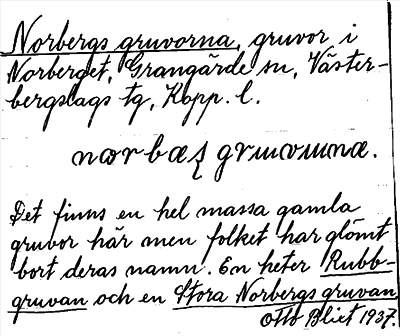 Norbergs gruvorna, gruvor i
Norberget, Grangärde sn, Väster-
bergslags tg, Kopp. l.
Det finns en hel massa gamla
gruvor här men folket har glömt
bort deras namn. En heter Rubb-
gruvan och en Stora Norbergs gruvan
Otto Blixt 1937.